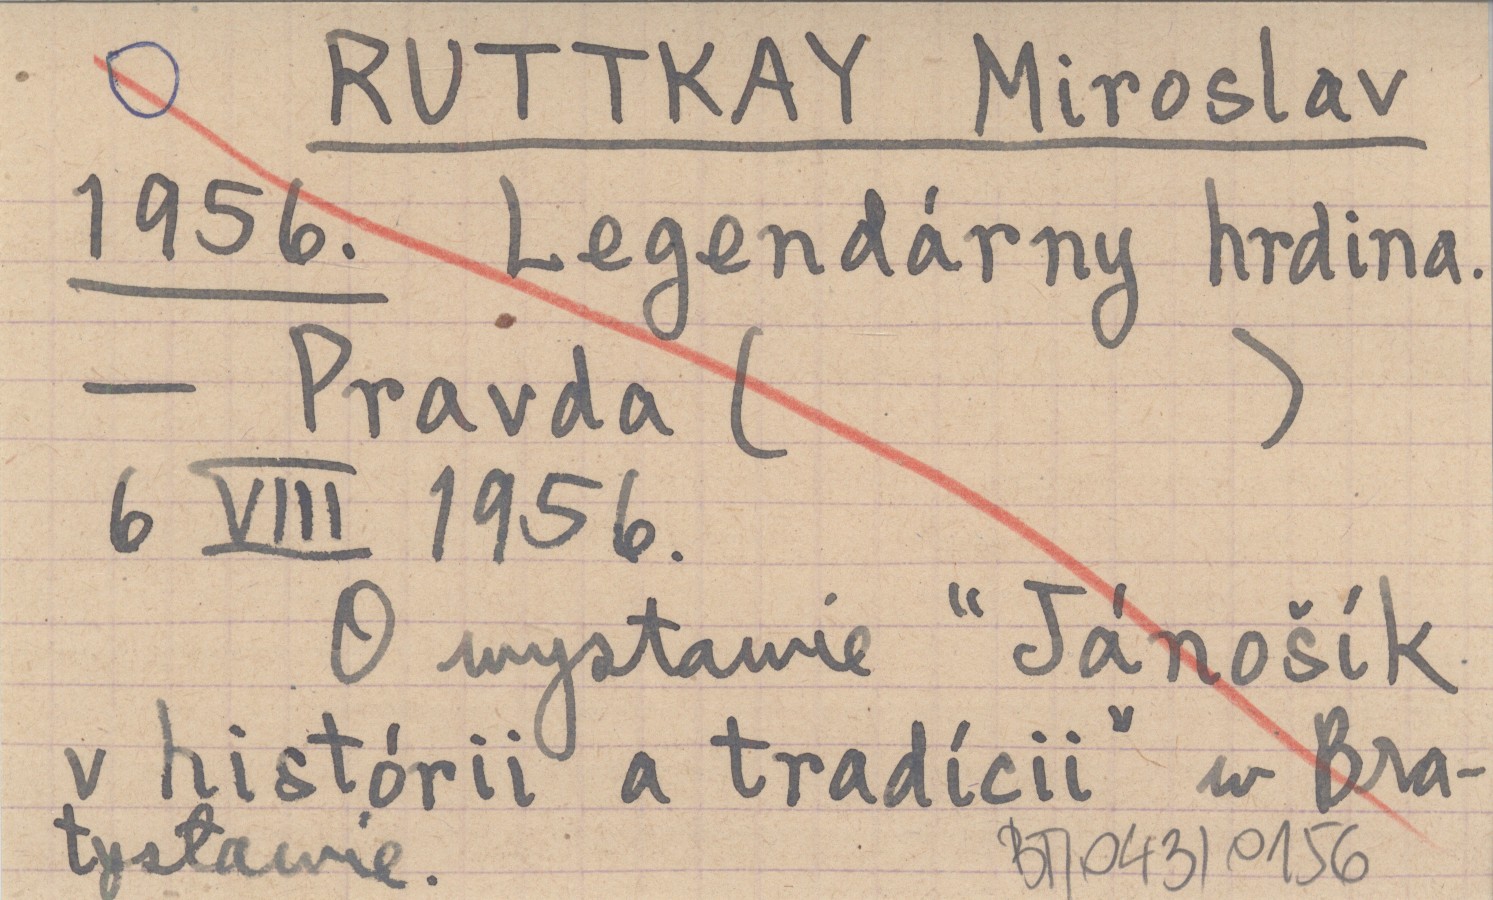 RUTTKAY Miroslav
1956. Legendárny hrdina.
— Pravda ( )
6 VIII 1956.
O wystawie "Jánošík
v histórii a tradícii" w Bra-
tysławie.
0156